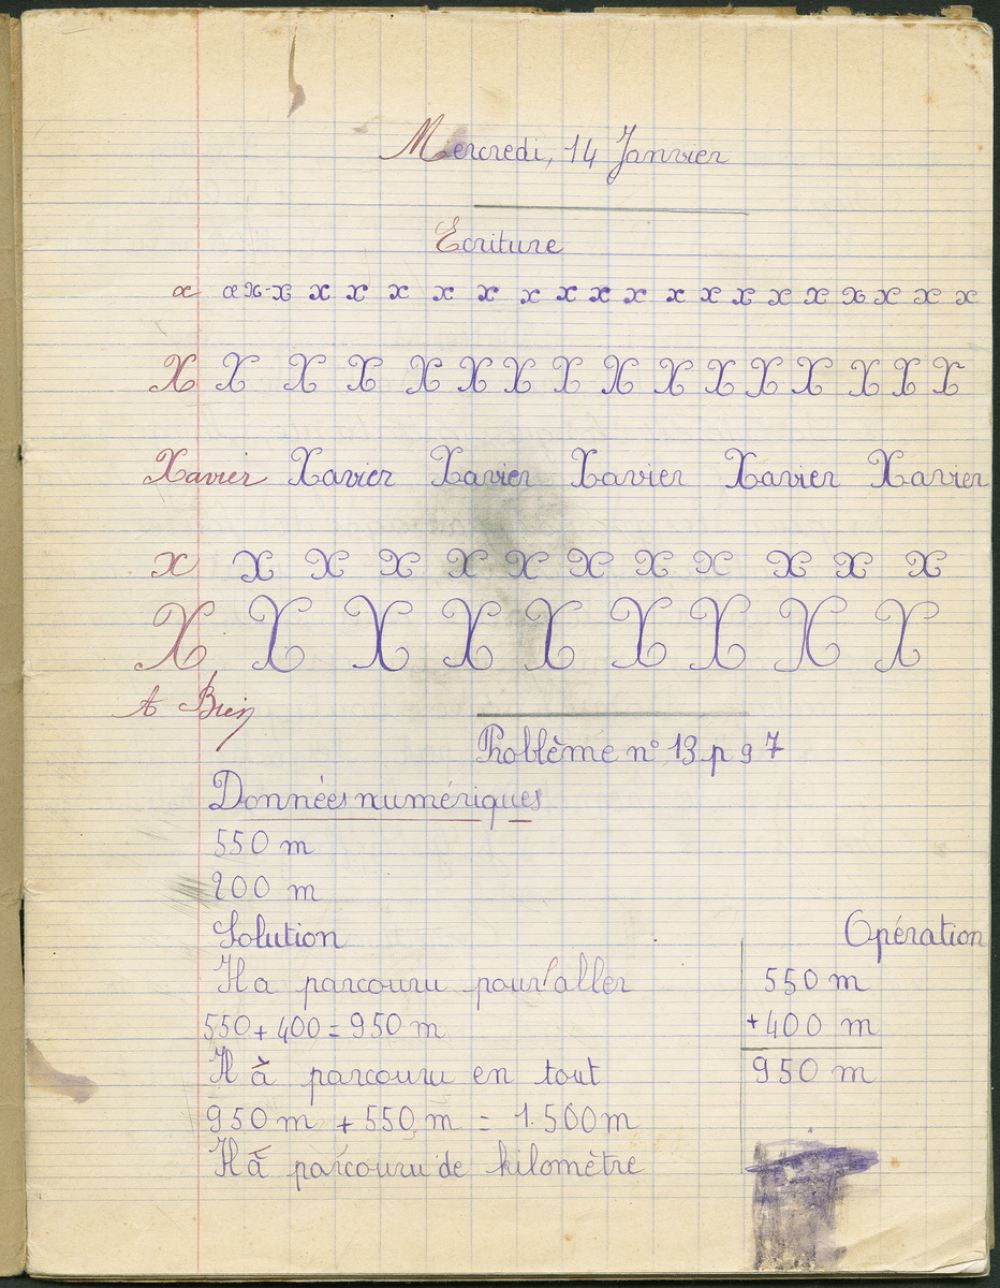 Mercredi, 14 Janvier
Ecriture
x x x x x x x x x x x x x x x x x x x x x x
X X X X X X X X X X X X X X X X
Xavier Xavier Xavier Xavier Xavier Xavier
x x x x x x x x x x x x
X X X X X X X X X
A Bien
Problème n° 13 p 97
Données numériques
550 m
200 m
Solution
Opération
Il a parcouru pour aller
550 m
550 + 400 = 950 m
+ 400 m
Il à parcouru en tout
950 m
950 m + 550 m = 1.500 m
Il à parcouru de kilomètre